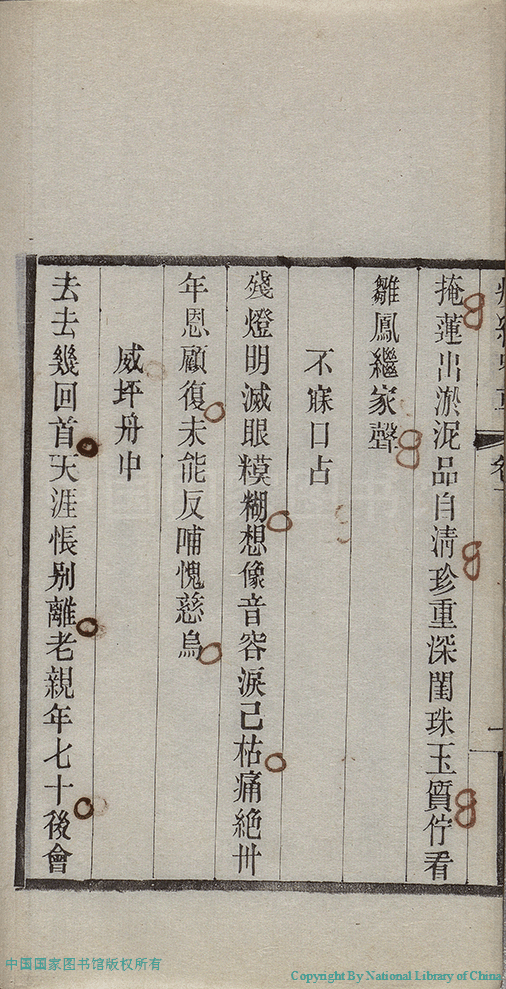 掩蓮出淤泥品自清珍重深閨珠玉質佇看
雛鳳繼家聲
不寐口占
殘燈明滅眼糢糊想像音容淚已枯痛絕卅
年恩顧復未能反哺愧慈烏
威坪舟中
去去幾回首天涯悵別離老親年七十後會
中国国家图书馆版权所有
Copyright By National Library of China